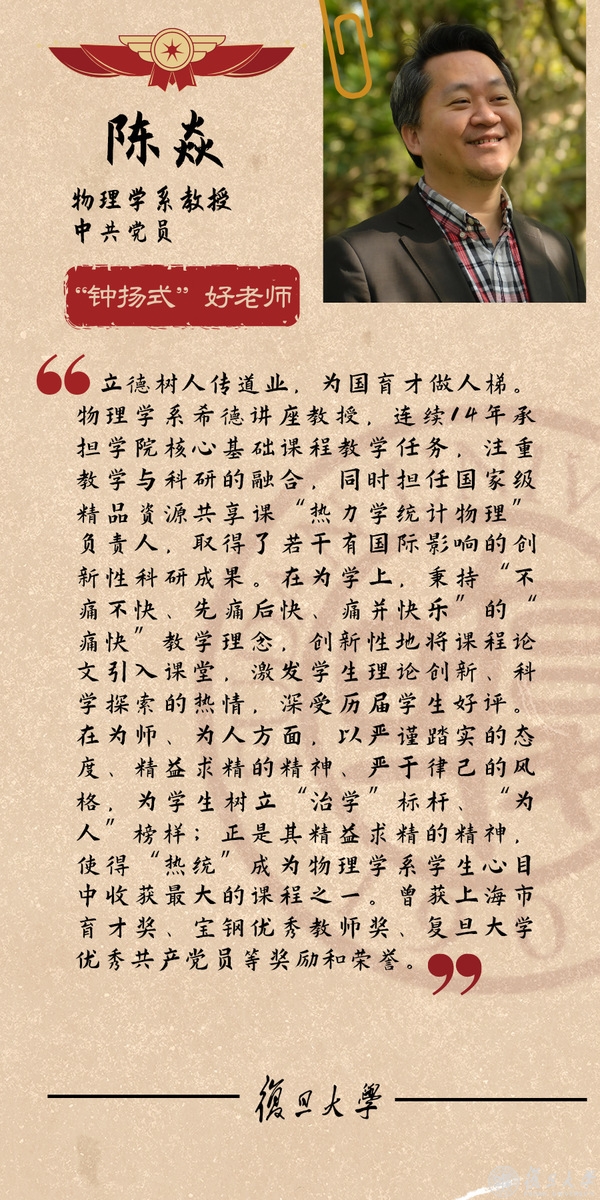 陈焱
物理学系教授
中共党员
“钟扬式”好老师
“立德树人传道业，为国育才做人梯。
物理学系希德讲座教授，连续14年承
担学院核心基础课程教学任务，注重
教学与科研的融合，同时担任国家级
精品资源共享课“热力学统计物理”
负责人，取得了若干有国际影响的创
新性科研成果。在为学上，秉持“不
痛不快、先痛后快、痛并快乐”的“
痛快”教学理念，创新性地将课程论
文引入课堂，激发学生理论创新、科
学探索的热情，深受历届学生好评。
在为师、为人方面，以严谨踏实的态
度、精益求精的精神、严于律己的风
格，为学生树立“治学”标杆、“为
人”榜样；正是其精益求精的精神，
使得“热统”成为物理学系学生心目
中收获最大的课程之一。曾获上海市
育才奖、宝钢优秀教师奖、复旦大学
优秀共产党员等奖励和荣誉。”
復旦大學